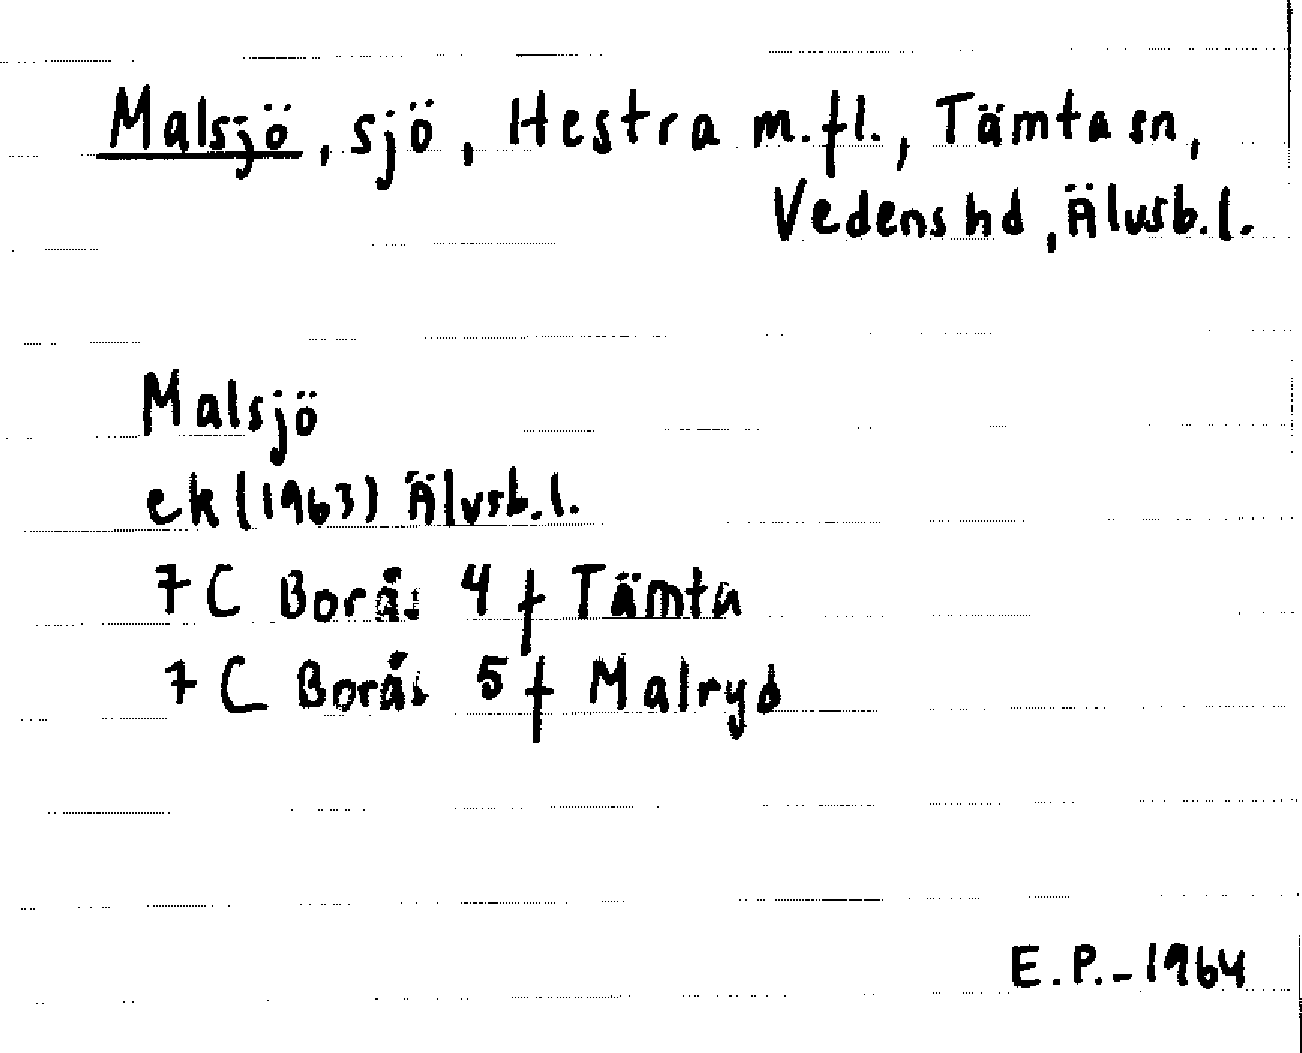 Malsjö, sjö, Hestra m.fl., Tämta sn,
Vedens hd, Älvsb.l.
Malsjö
ek (1963) Älvsb.l.
7C Borås 4 f Tämta
7C Borås 5 f Malryd
E.P.-1964